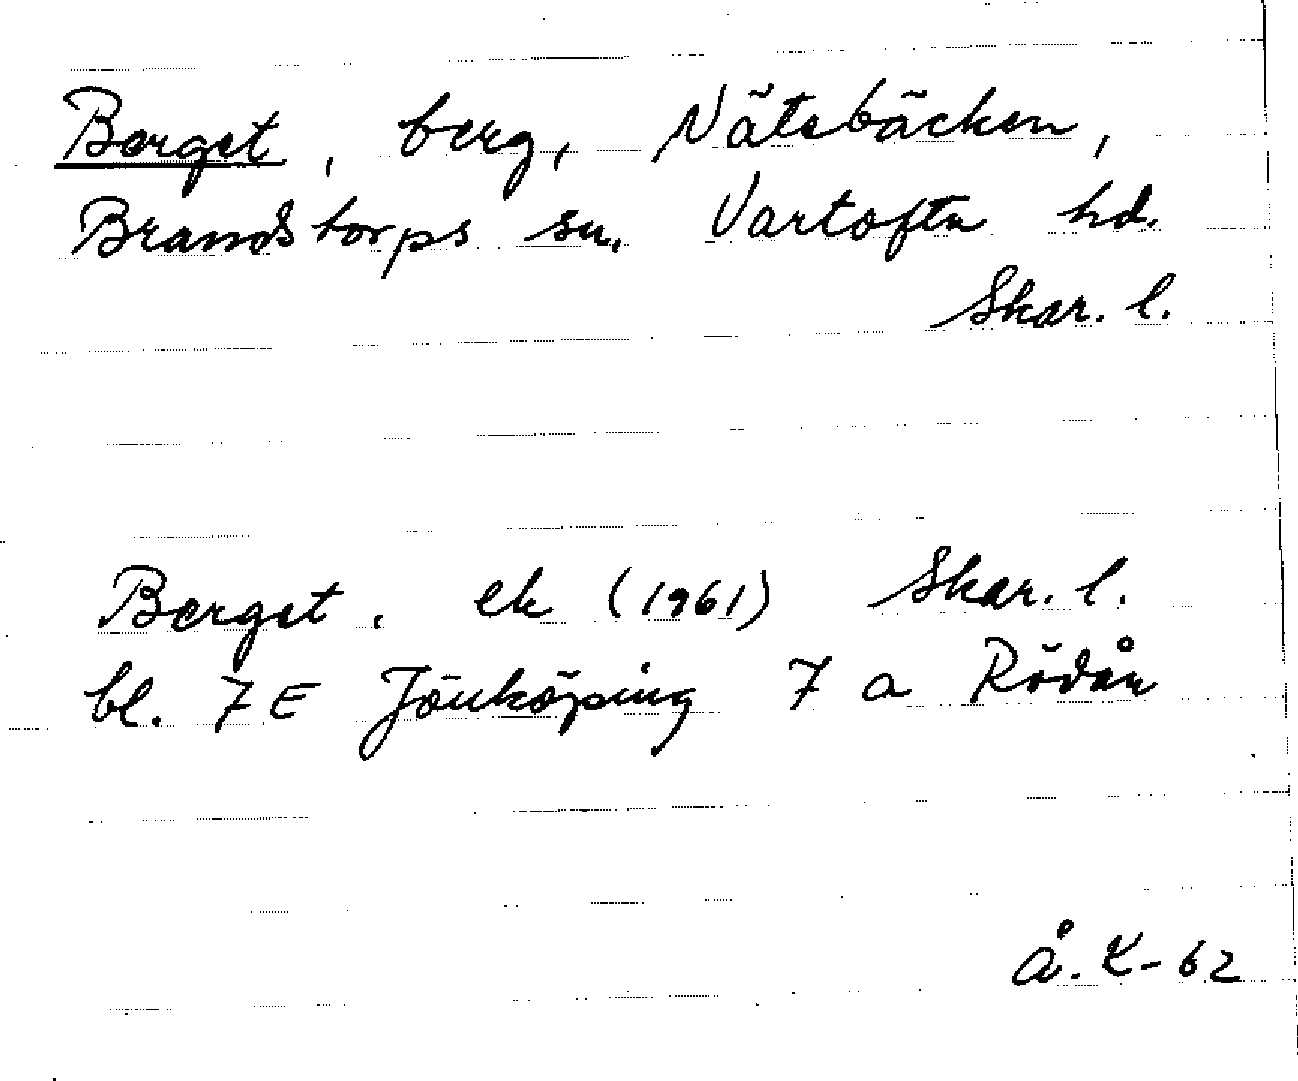 Berget, berg, Nätebäcken,
Brandstorps sn. Vartofta hd.
Skar. l.
Berget. ek (1961) Skar. l.
bl. 7 E Jönköping 7 a Rödån
Å. K-62